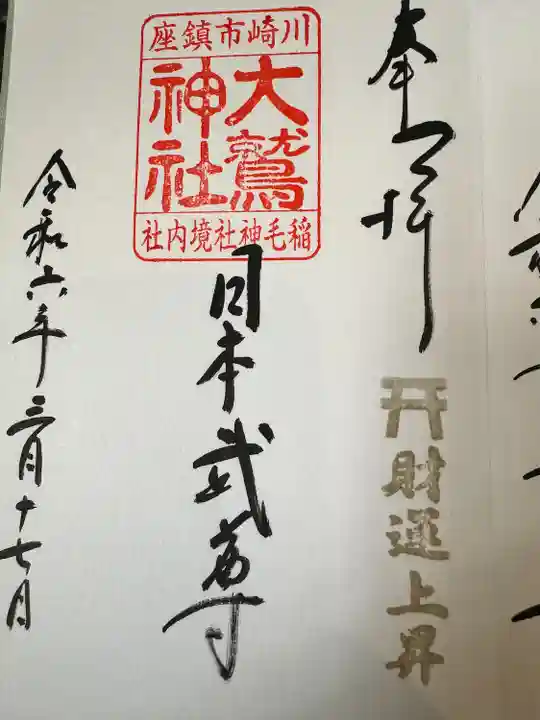 奉拝
財運上昇
川崎市鎮座
大鷲神社
稲毛神社境内社
日本武尊
令和六年三月十七日